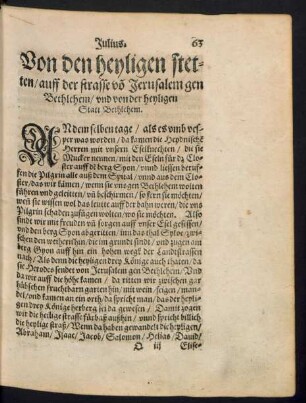 Julius. 63
Von den heyligen stet-
ten/ auff der strasse võ Jerusalem gen
Bethlehem/ vnd von der heyligen
Statt Bethlehem.
ANdem selben tage/ als es vmb ves-
per was worden/ da kamen die Heydnische
Herren mit vnsern Eseltreibern/ die sie
Mucker nennen/ mit den Eseln für dz Clo-
ster auff dē berg Syon/ vnnd liessen beruf-
fen die Pilgrin alle auß dem Spital/ vnnd auß dem Clo-
ster/ das wir kämen/ wenn sie vns gen Bethlehem wolten
führen vnd geleitten/ vñ beschirmen/ so fern sie möchten/
weñ sie wissen wol das leute auff der bahn weren/ die vns
Pilgrin schaden zufügen wolten/ wo sie möchten. Also
sind wir mit freuden vñ sorgen auff vnser Esel gesessen/
vnd den berg Syon abgeritten/ inn das thal Syloe zwi-
schen den weyern hin/ die im grunde sind/ vnd zugen am
berg Gyon auff hin ein hohen wegk der Landstrassen
nach/ Als dann die heyligen drey Könige auch thaten/ da
sie Herodes sendet von Jerusalem gen Bethlehem/ Vnd
da wir auff die höhe kamen/ da ritten wir zwischen gar
hübschen fruchtbarn garten hin/ mit wein/ feigen/ man-
del/ vnd kamen an ein orth/ da spricht man/ das der heyli-
gen drey Könige herberg sei da gewesen/ Damit zogen
wir die heilige strasse fürbaß auffhin/ vnnd spricht billich
die heylige straß/ Wenn da haben gewandelt die heyligen/
Abraham/ Isaac/ Jacob/ Salomon/ Helias/ Dauid/
O iij Elise-